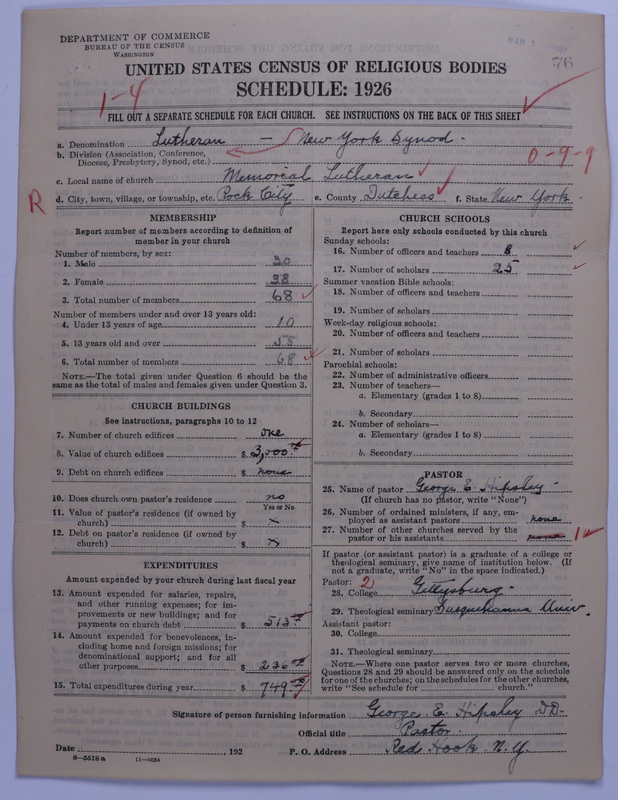 DEPARTMENT OF COMMERCE
BUREAU OF THE CENSUS
WASHINGTON
MAR
76
UNITED STATES CENSUS OF RELIGIOUS BODIES
SCHEDULE: 1926
1-4
FILL OUT A SEPARATE SCHEDULE FOR EACH CHURCH. SEE INSTRUCTIONS ON THE BACK OF THIS SHEET
a. Denomination Lutheran - New York Synod.
b. Division (Association, Conference,
Diocese, Presbytery, Synod, etc.)
0-9-9
c. Local name of church Memorial Lutheran
R
d. City, town, village, or township, etc. Rock City e. County Dutchess f. State New York.
MEMBERSHIP
Report number of members according to definition of
member in your church
Number of members, by sex:
1. Male 30
2. Female 38
3. Total number of members 68
Number of members under and over 13 years old:
4. Under 13 years of age 10
5. 13 years old and over 58
6. Total number of members 68
NOTE.—The total given under Question 6 should be the
same as the total of males and females given under Question 3.
CHURCH BUILDINGS
See instructions, paragraphs 10 to 12
7. Number of church edifices one
8. Value of church edifices $ 3,000.
9. Debt on church edifices $ none
10. Does church own pastor's residence no
Yes or No
11. Value of pastor's residence (if owned by
church) $ x
12. Debt on pastor's residence (if owned by
church) $ x
EXPENDITURES
Amount expended by your church during last fiscal year
13. Amount expended for salaries, repairs,
and other running expenses; for im-
provements or new buildings; and for
payments on church debt $ 513
14. Amount expended for benevolences, in-
cluding home and foreign missions; for
denominational support; and for all
other purposes $ 236
15. Total expenditures during year $ 749.
CHURCH SCHOOLS
Report here only schools conducted by this church
Sunday schools:
16. Number of officers and teachers 8
17. Number of scholars 25
Summer vacation Bible schools:
18. Number of officers and teachers
19. Number of scholars
Week-day religious schools:
20. Number of officers and teachers
21. Number of scholars
Parochial schools:
22. Number of administrative officers
23. Number of teachers—
a. Elementary (grades 1 to 8)
b. Secondary
24. Number of scholars—
a. Elementary (grades 1 to 8)
b. Secondary
PASTOR
25. Name of pastor George E Hipsley
(If church has no pastor, write "None")
26. Number of ordained ministers, if any, em-
ployed as assistant pastors none
27. Number of other churches served by the
pastor or his assistants none 1
If pastor (or assistant pastor) is a graduate of a college or
theological seminary, give name of institution below. (If
not a graduate, write "No" in the space indicated.)
Pastor: 2
28. College Gettysburg.
29. Theological seminary Susquehanna Univ.
Assistant pastor:
30. College
31. Theological seminary
NOTE.—Where one pastor serves two or more churches,
Questions 28 and 29 should be answered only on the schedule
for one of the churches; on the schedules for the other churches,
write "See schedule for church."
Signature of person furnishing information George E Hipsley DD-
Official title Pastor.
Date , 192 P. O. Address Red Hook N.Y.
8-5518a 11-0654